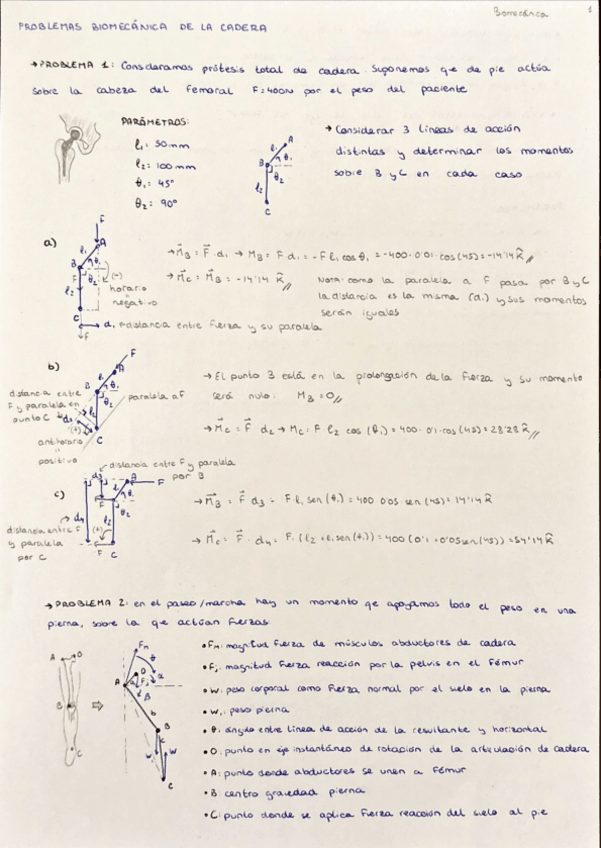 Biomecánica
1
PROBLEMAS BIOMECÁNICA DE LA CADERA
→ PROBLEMA 1: Consideramos prótesis total de cadera. Suponemos que de pie actúa
sobre la cabeza del femoral F=400N por el peso del paciente
PARÁMETROS:
l₁ = 50 mm
l₂ = 100 mm
θ₁ = 45°
θ₂ = 90°
A
l₁
B
θ₁
θ₂
l₂
C
→ Considerar 3 líneas de acción
distintas y determinar los momentos
sobre B y C en cada caso
a)
F
A
l₁
B
θ₁
F
θ₂
l₂
(-)
horario
=
negativo
C
F
d₁ = distancia entre fuerza y su paralela
→ M⃗B = F⃗ · d₁ → MB = F d₁ = -F l₁ cos θ₁ = -400 · 0'01 · cos(45) = -14'14 k̂
→ M⃗C = M⃗B = -14'14 k̂
NOTA: como la paralela a F pasa por B y C
la distancia es la misma (d₁) y sus momentos
serán iguales
b)
F
A
l₁
B
θ₁
θ₂
l₂
C
distancia entre
F y paralela en
punto C
d₂
(+)
antihorario
=
positivo
paralela a F
→ El punto B está en la prolongación de la fuerza y su momento
será nulo: MB = 0
→ M⃗C = F⃗ d₂ → MC = F l₂ cos (θ₁) = 400 · 0'1 · cos(45) = 28'28 k̂
c)
distancia entre F y paralela
por B
d₃
A
F
l₁
θ₁
F
θ₂
l₂
d₄
(+)
F
C
distancia entre F
y paralela
por C
→ M⃗B = F⃗ d₃ = F l₁ sen(θ₁) = 400 · 0'05 · sen(45) = 14'14 k̂
→ M⃗C = F⃗ · d₄ = F · (l₂ + l₁ sen(θ₁)) = 400 (0'1 + 0'05 sen(45)) = 54'14 k̂
→ PROBLEMA 2: en el paseo/marcha hay un momento qe apoyamos todo el peso en una
pierna, sobre la qe actúan fuerzas:
A
O
B
C
FM
θ
O
FJ
α
A
a
β
b
B
W₁
W
c
C
• FM: magnitud fuerza de músculos abductores de cadera
• FJ: magnitud fuerza reacción por la pelvis en el fémur
• W: peso corporal como fuerza normal por el suelo en la pierna
• W₁: peso pierna
• θ: ángulo entre línea de acción de la resultante y horizontal
• O: punto en eje instantáneo de rotación de la articulación de cadera
• A: punto donde abductores se unen a fémur
• B: centro gravedad pierna
• C: punto donde se aplica fuerza reacción del suelo al pie